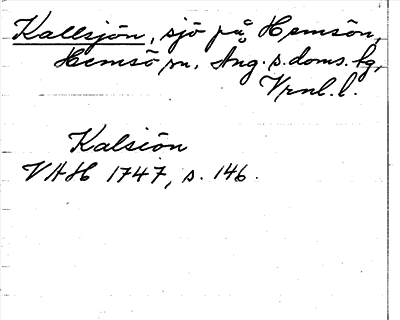 Kallsjön, sjö på Hemsön,
Hemsö sn. Ång. s. doms. hg,
Vrnl. l.
Kalsiön
VAH 1747, s. 146.